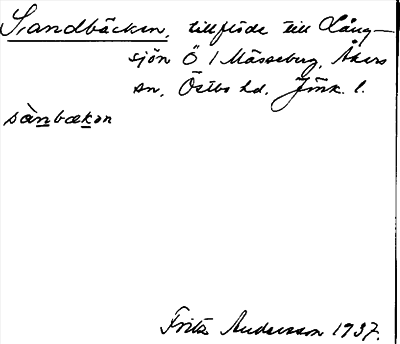 Sandbäcken, tillflöde till Lång-
sjön Ö / Mässeberg, Åkers
sn, Östbo hd, Jönk. l.
sànbækən
Fritz Andersson 1937.